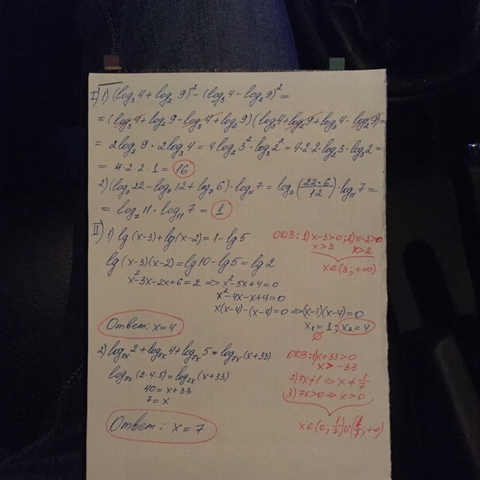 I) 1) (log₃4 + log₂9)² - (log₃4 - log₂9)² =
= (log₃4 + log₂9 - log₃4 + log₂9)(log₃4 + log₂9 + log₃4 - log₂9) =
= 2log₂9 · 2log₃4 = 4log₂3² · log₃2² = 4·2·2 log₂3 · log₃2 =
= 4·2·2·1 = 16
2) (log₇22 - log₇12 + log₇6) · log₁₁7 = log₇(22·6/12) · log₁₁7 =
= log₇11 · log₁₁7 = 1
II) 1) lg(x-3) + lg(x-2) = 1 - lg5
ОДЗ: 1) x-3>0; 2) x-2>0
x>3 x>2
x∈(3; +∞)
lg(x-3)(x-2) = lg10 - lg5 = lg2
x²-3x-2x+6=2 => x²-5x+4=0
x²-4x-x+4=0
x(x-4)-(x-4)=0 => (x-1)(x-4)=0
x₁=1; x₂=4
∅
Ответ: x=4
2) log₇ₓ2 + log₇ₓ4 + log₇ₓ5 = log₇ₓ(x+33)
ОДЗ: 1) x+33>0
x>-33
log₇ₓ(2·4·5) = log₇ₓ(x+33)
2) 7x≠1 => x≠1/7
40 = x+33
3) 7x>0 => x>0
7 = x
x∈(0; 1/7)∪(1/7; +∞)
Ответ: x=7